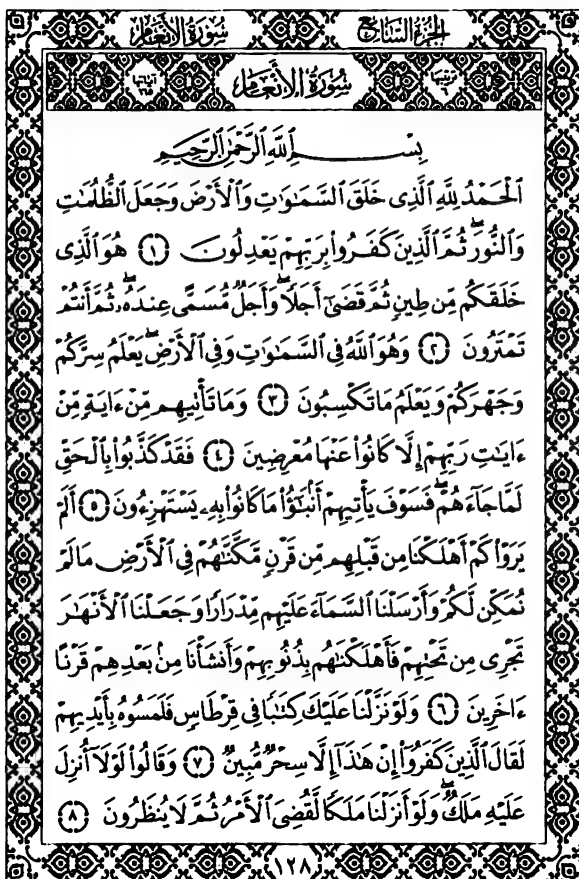 سُورَةُ الأَنْعَامِ الجُزْءُ السَّابِعُ
ترتيبها ٦ سُورَةُ الأَنْعَامِ آياتها ١٦٥
بِسْمِ ٱللَّهِ ٱلرَّحْمَٰنِ ٱلرَّحِيمِ
ٱلْحَمْدُ لِلَّهِ ٱلَّذِى خَلَقَ ٱلسَّمَٰوَٰتِ وَٱلْأَرْضَ وَجَعَلَ ٱلظُّلُمَٰتِ
وَٱلنُّورَ ۖ ثُمَّ ٱلَّذِينَ كَفَرُوا۟ بِرَبِّهِمْ يَعْدِلُونَ ﴿١﴾ هُوَ ٱلَّذِى
خَلَقَكُم مِّن طِينٍ ثُمَّ قَضَىٰٓ أَجَلًا ۖ وَأَجَلٌ مُّسَمًّى عِندَهُۥ ۖ ثُمَّ أَنتُمْ
تَمْتَرُونَ ﴿٢﴾ وَهُوَ ٱللَّهُ فِى ٱلسَّمَٰوَٰتِ وَفِى ٱلْأَرْضِ ۖ يَعْلَمُ سِرَّكُمْ
وَجَهْرَكُمْ وَيَعْلَمُ مَا تَكْسِبُونَ ﴿٣﴾ وَمَا تَأْتِيهِم مِّنْ ءَايَةٍ مِّنْ
ءَايَٰتِ رَبِّهِمْ إِلَّا كَانُوا۟ عَنْهَا مُعْرِضِينَ ﴿٤﴾ فَقَدْ كَذَّبُوا۟ بِٱلْحَقِّ
لَمَّا جَآءَهُمْ ۖ فَسَوْفَ يَأْتِيهِمْ أَنۢبَٰٓؤُا۟ مَا كَانُوا۟ بِهِۦ يَسْتَهْزِءُونَ ﴿٥﴾ أَلَمْ
يَرَوْا۟ كَمْ أَهْلَكْنَا مِن قَبْلِهِم مِّن قَرْنٍ مَّكَّنَّٰهُمْ فِى ٱلْأَرْضِ مَا لَمْ
نُمَكِّن لَّكُمْ وَأَرْسَلْنَا ٱلسَّمَآءَ عَلَيْهِم مِّدْرَارًا وَجَعَلْنَا ٱلْأَنْهَٰرَ
تَجْرِى مِن تَحْتِهِمْ فَأَهْلَكْنَٰهُم بِذُنُوبِهِمْ وَأَنشَأْنَا مِنۢ بَعْدِهِمْ قَرْنًا
ءَاخَرِينَ ﴿٦﴾ وَلَوْ نَزَّلْنَا عَلَيْكَ كِتَٰبًا فِى قِرْطَاسٍ فَلَمَسُوهُ بِأَيْدِيهِمْ
لَقَالَ ٱلَّذِينَ كَفَرُوٓا۟ إِنْ هَٰذَآ إِلَّا سِحْرٌ مُّبِينٌ ﴿٧﴾ وَقَالُوا۟ لَوْلَآ أُنزِلَ
عَلَيْهِ مَلَكٌ ۖ وَلَوْ أَنزَلْنَا مَلَكًا لَّقُضِىَ ٱلْأَمْرُ ثُمَّ لَا يُنظَرُونَ ﴿٨﴾
١٢٨